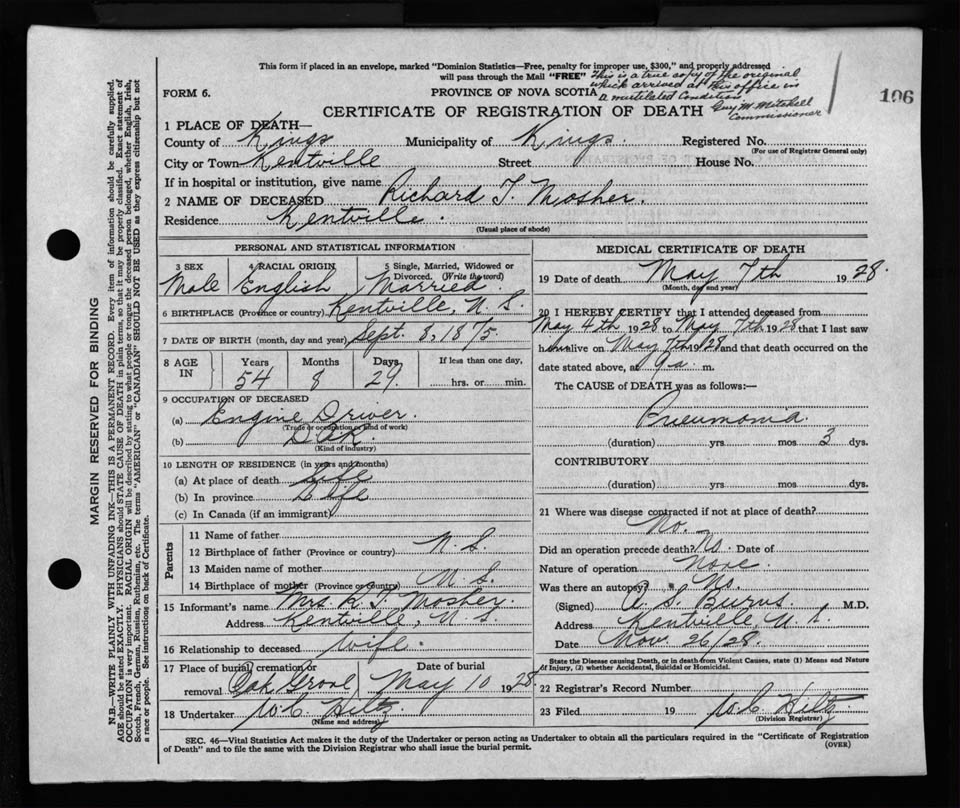 This form if placed in an envelope, marked "Dominion Statistics—Free, penalty for improper use, $300," and properly addressed
will pass through the Mail "FREE" This is a true copy of the original
which arrived at this office in
a mutilated condition
Guy M. Mitchell
Commissioner
106
FORM 6.
PROVINCE OF NOVA SCOTIA
CERTIFICATE OF REGISTRATION OF DEATH
1 PLACE OF DEATH—
County of Kings Municipality of Kings. Registered No.
(For use of Registrar General only)
City or Town Kentville Street House No.
If in hospital or institution, give name
2 NAME OF DECEASED Richard T. Mosher.
Residence Kentville.
(Usual place of abode)
PERSONAL AND STATISTICAL INFORMATION
3 SEX 4 RACIAL ORIGIN 5 Single, Married, Widowed or
Divorced. (Write the word)
Male English Married.
6 BIRTHPLACE (Province or country) Kentville, N. S.
7 DATE OF BIRTH (month, day and year) Sept. 8, 1875.
8 AGE IN Years Months Days If less than one day,
54 8 29. hrs. or min.
9 OCCUPATION OF DECEASED
(a) Engine Driver.
(Trade or occupation or kind of work)
(b) D.A.R.
(Kind of industry)
10 LENGTH OF RESIDENCE (in years and months)
(a) At place of death Life
(b) In province Life
(c) In Canada (if an immigrant)
Parents
11 Name of father
12 Birthplace of father (Province or country) N. S.
13 Maiden name of mother
14 Birthplace of mother (Province or Country) N. S.
15 Informant's name Mrs. R. T. Mosher.
Address Kentville, N. S.
16 Relationship to deceased Wife.
17 Place of burial, cremation or Date of burial
removal Oak Grove May 10 1928
18 Undertaker W. C. Hiltz
(Name and address)
MEDICAL CERTIFICATE OF DEATH
19 Date of death May 7th 1928.
(Month, day and year)
20 I HEREBY CERTIFY that I attended deceased from
May 4th 1928 to May 7th 1928 that I last saw
him alive on May 7th 1928 and that death occurred on the
date stated above, at 9 a. m.
The CAUSE of DEATH was as follows:—
Pneumonia
(duration) yrs. mos 3 dys.
CONTRIBUTORY
(duration) yrs. mos. dys.
21 Where was disease contracted if not at place of death?
No.
Did an operation precede death? No. Date of
Nature of operation None.
Was there an autopsy? No.
(Signed) A. S. Burns. M.D.
Address Kentville N. S.
Date Nov. 26/28.
State the Disease causing Death, or in death from Violent Causes, state (1) Means and Nature
of Injury, (2) whether Accidental, Suicidal or Homicidal.
22 Registrar's Record Number
23 Filed 19 W. C. Hiltz
(Division Registrar)
SEC. 46—Vital Statistics Act makes it the duty of the Undertaker or person acting as Undertaker to obtain all the particulars required in the "Certificate of Registration
of Death" and to file the same with the Division Registrar who shall issue the burial permit.
(OVER)
MARGIN RESERVED FOR BINDING
N.B.—WRITE PLAINLY WITH UNFADING INK—THIS IS A PERMANENT RECORD. Every item of information should be carefully supplied.
AGE should be stated EXACTLY. PHYSICIANS should STATE CAUSE OF DEATH in plain terms, so that it may be properly classified. Exact statement of
OCCUPATION is very important. RACIAL ORIGIN will be described by stating to what people or tongue the deceased person belonged, whether English, Irish,
Scotch, French, German, Russian, Ruthenian, etc. The terms "AMERICAN" or "CANADIAN" SHOULD NOT BE USED as they express citizenship but not
a race or people. See instructions on back of Certificate.